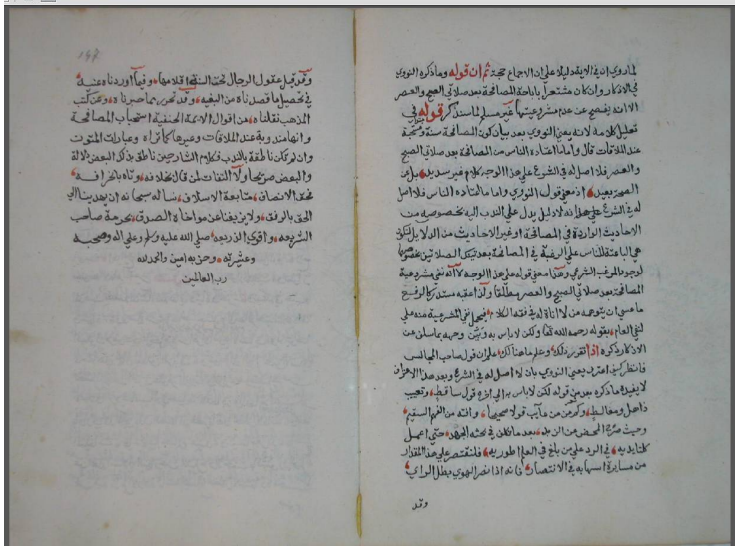 لما روي ان في الابقد ليلا على ان الاجماع حجة ثم ان قوله وما ذكره النووي
في الاذكار وان كان مشتعرا باباحة المصافحة بعد صلاتي الصبح والعصر
الا انه يفصح عن عدم مشروعيتها غير مسلم لما سنذكر قوله في
تعليل كلامه لانه يعني النووي بعد بيان كون المصافحة سنة ومستحبة
عند الملاقات قال واما ما اعتاده الناس من المصافحة بعد صلاتي الصبح
والعصر فلا اصل له في الشرع على هذا الوجه كلام غير سديد بل عن
الصحة بعيد اذ معنى قول النووي واما ما اعتاده الناس فلا اصل
له في الشرع على هذا انه لا دليل يدل على الندب اليه بخصوصيه من
الاحاديث الواردة في المصافحة او غير الاحاديث من الدلايل لتكن
هي الباعثة للناس على الرغبة في المصافحة بعد تينك الصلاتين بخصوصها
لوجود المرغب الشرعي وهذا معنى قوله على هذا الوجه لا انه نفى مشروعية
المصافحة بعد صلاتي الصبح والعصر مطلقا ولذا عقبه مستدركا لرفع
ما عسى ان يتوهمه من لا اناة له في فقه الكلام فيحمل نفي المشروعية منه على
نفي العام بقوله رحمه الله تعا ولكن لا باس به وبين وجهه بما سلف عن
الاذكار ذكره اذا تقرر ذلك وعلم ما هنالك علم ان قول صاحب المجالس
فانظر كيف اعترف يعني النووي بان لا اصل له في الشرع وبعد هذا الاعتراف
لا يفيده ما ذكره بعد من قوله لكن لا باس به الى اخره قول ساقط وتعييب
ذاهل ومغالط وكم من عايب قولا صحيحا وافته من الفهم السقيم
وحيث صرح المحض عن الزبد بعد ما كان في لحثه الجهد حتى اعمل
كلتا يديه في الرد على من بلغ في العلم اطوريه فلنقتصر على هذا المقدار
من مسايرة اسهابه في الانتصار فانه اذا نصر الهوى بطل الراي
وقد
147
وقد قيل عقول الرجال تحت اسنة اقلامها وفيما اوردناه غنية
في تحصيل ما قصدناه من البغيه وقد تحرر بما حبرناه وعن كتب
المذهب نقلناه من اقوال الائمة الحنفية استحباب المصافحة
وانها مندوبة عند الملاقات وغيرها كما تراه وعبارات المتون
وان لم تكن ناطقة بالندب فكلام الشارحين ناطق بذكر البعض دلالة
والبعض صريحا ولا التفات لمن قال بخلافه وتاه بانحرافه
فحق الانصاف متابعة الاسلاف نساله سبحانه ان يهدينا الى
الحق بالرفق ولا يزيغنا عن مواخاة الصدق بحرمة صاحب
الشريعه واقوى الذريعه صلى الله عليه وسلم وعلى اله وصحبه
وعشيرته وحزبه امين والحمد لله
رب العالمين